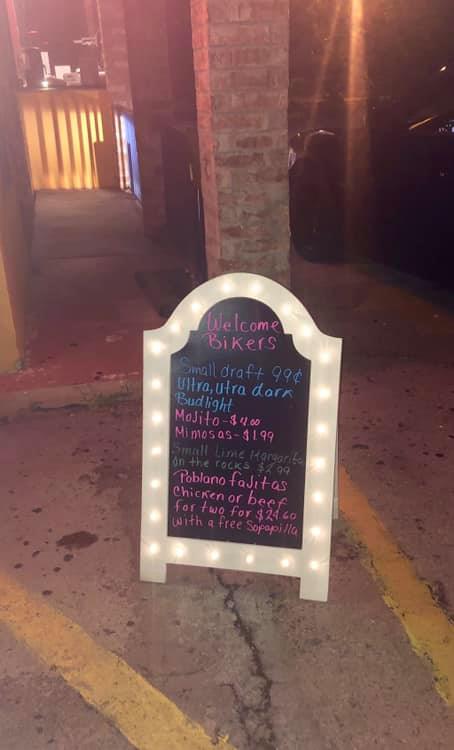 Welcome
Bikers
Small draft 99¢
Ultra, utra dark
Budlight
Mojito-$4.00
Mimosas-$1.99
Small Lime Margarita
on the rocks $2.99
Poblano fajitas
Chicken or beef
for two for $21.60
with a free Sopapilla